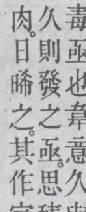 毒亟也韋意久
久則發之亟。思積
肉。日晞之。其作